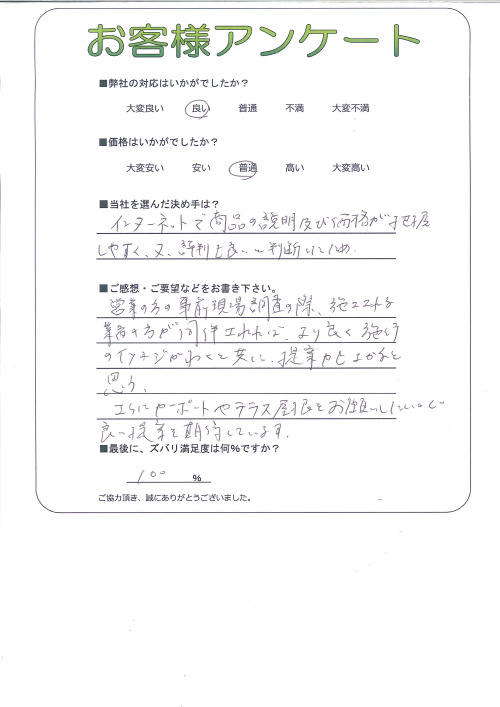 お客様アンケート
■弊社の対応はいかがでしたか？
大変良い 良い 普通 不満 大変不満
■価格はいかがでしたか？
大変安い 安い 普通 高い 大変高い
■当社を選んだ決め手は？
インターネットで商品の説明及び価格が把握
しやすく、又、評判も良いと判断したため.
■ご感想・ご要望などをお書き下さい。
営業の方の事前現場調査の際、施工される
業者の方が同伴されれば、より良く施行
のイメージがわくと共に、提案力も上がると
思う、
さらにカーポートやテラス屋根をお願いしたいので
良い提案を期待しています.
■最後に、ズバリ満足度は何％ですか？
100 %
ご協力頂き、誠にありがとうございました。